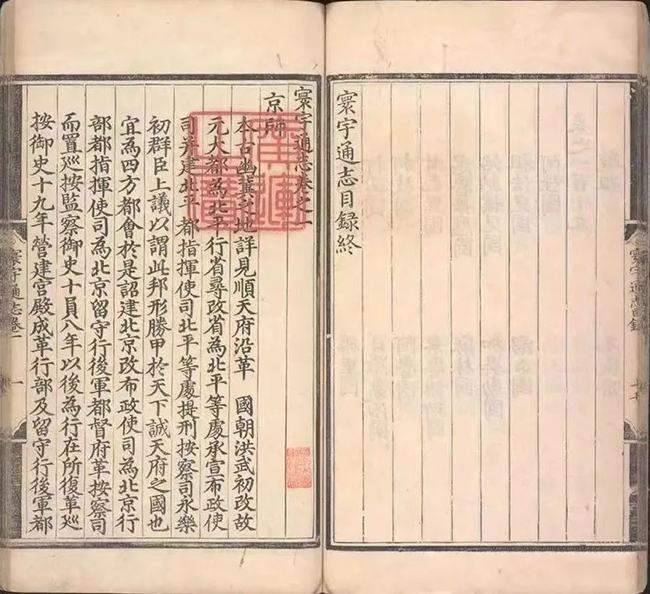 寰宇通志目録
寰宇通志目録終
寰宇通志卷之一
京師
本古幽冀之地詳見順天府沿革 國朝洪武初改故
元大都為北平行省尋改省為北平等處承宣布政使
司并建北平都指揮使司北平等處提刑按察司永樂
初群臣上議以謂此邦形勝甲於天下誠天府之國也
宜為四方都會於是詔建北京改布政使司為北京行
部都指揮使司為北京留守行後軍都督府革按察司
而置巡按監察御史十員八年以後為行在所復革巡
按御史十九年營建宮殿成革行部及留守行後軍都
寰宇通志卷一 一